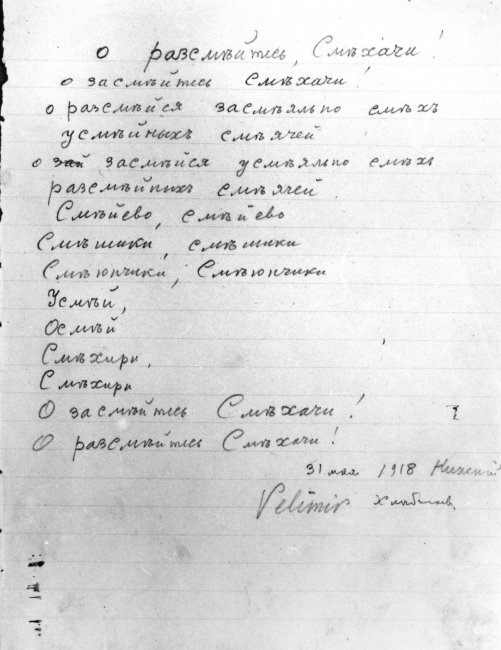 О разсмѣйтесь, Смѣхачи!
о засмѣйтесь смѣхачи!
о разсмѣйся засмѣяльно смѣхъ
усмѣйныхъ смѣячей
о засмѣйся усмѣяльно смѣхъ
разсмѣйныхъ смѣячей
Смѣйево, смѣйево
Смѣшики, смѣшики
Смѣюнчики, Смѣюнчики
Усмѣй,
Осмѣй
Смѣхири,
Смѣхири
О засмѣйтесь Смѣхачи!
О разсмѣйтесь Смѣхачи!
31 мая 1918
Velimir Хлебников.